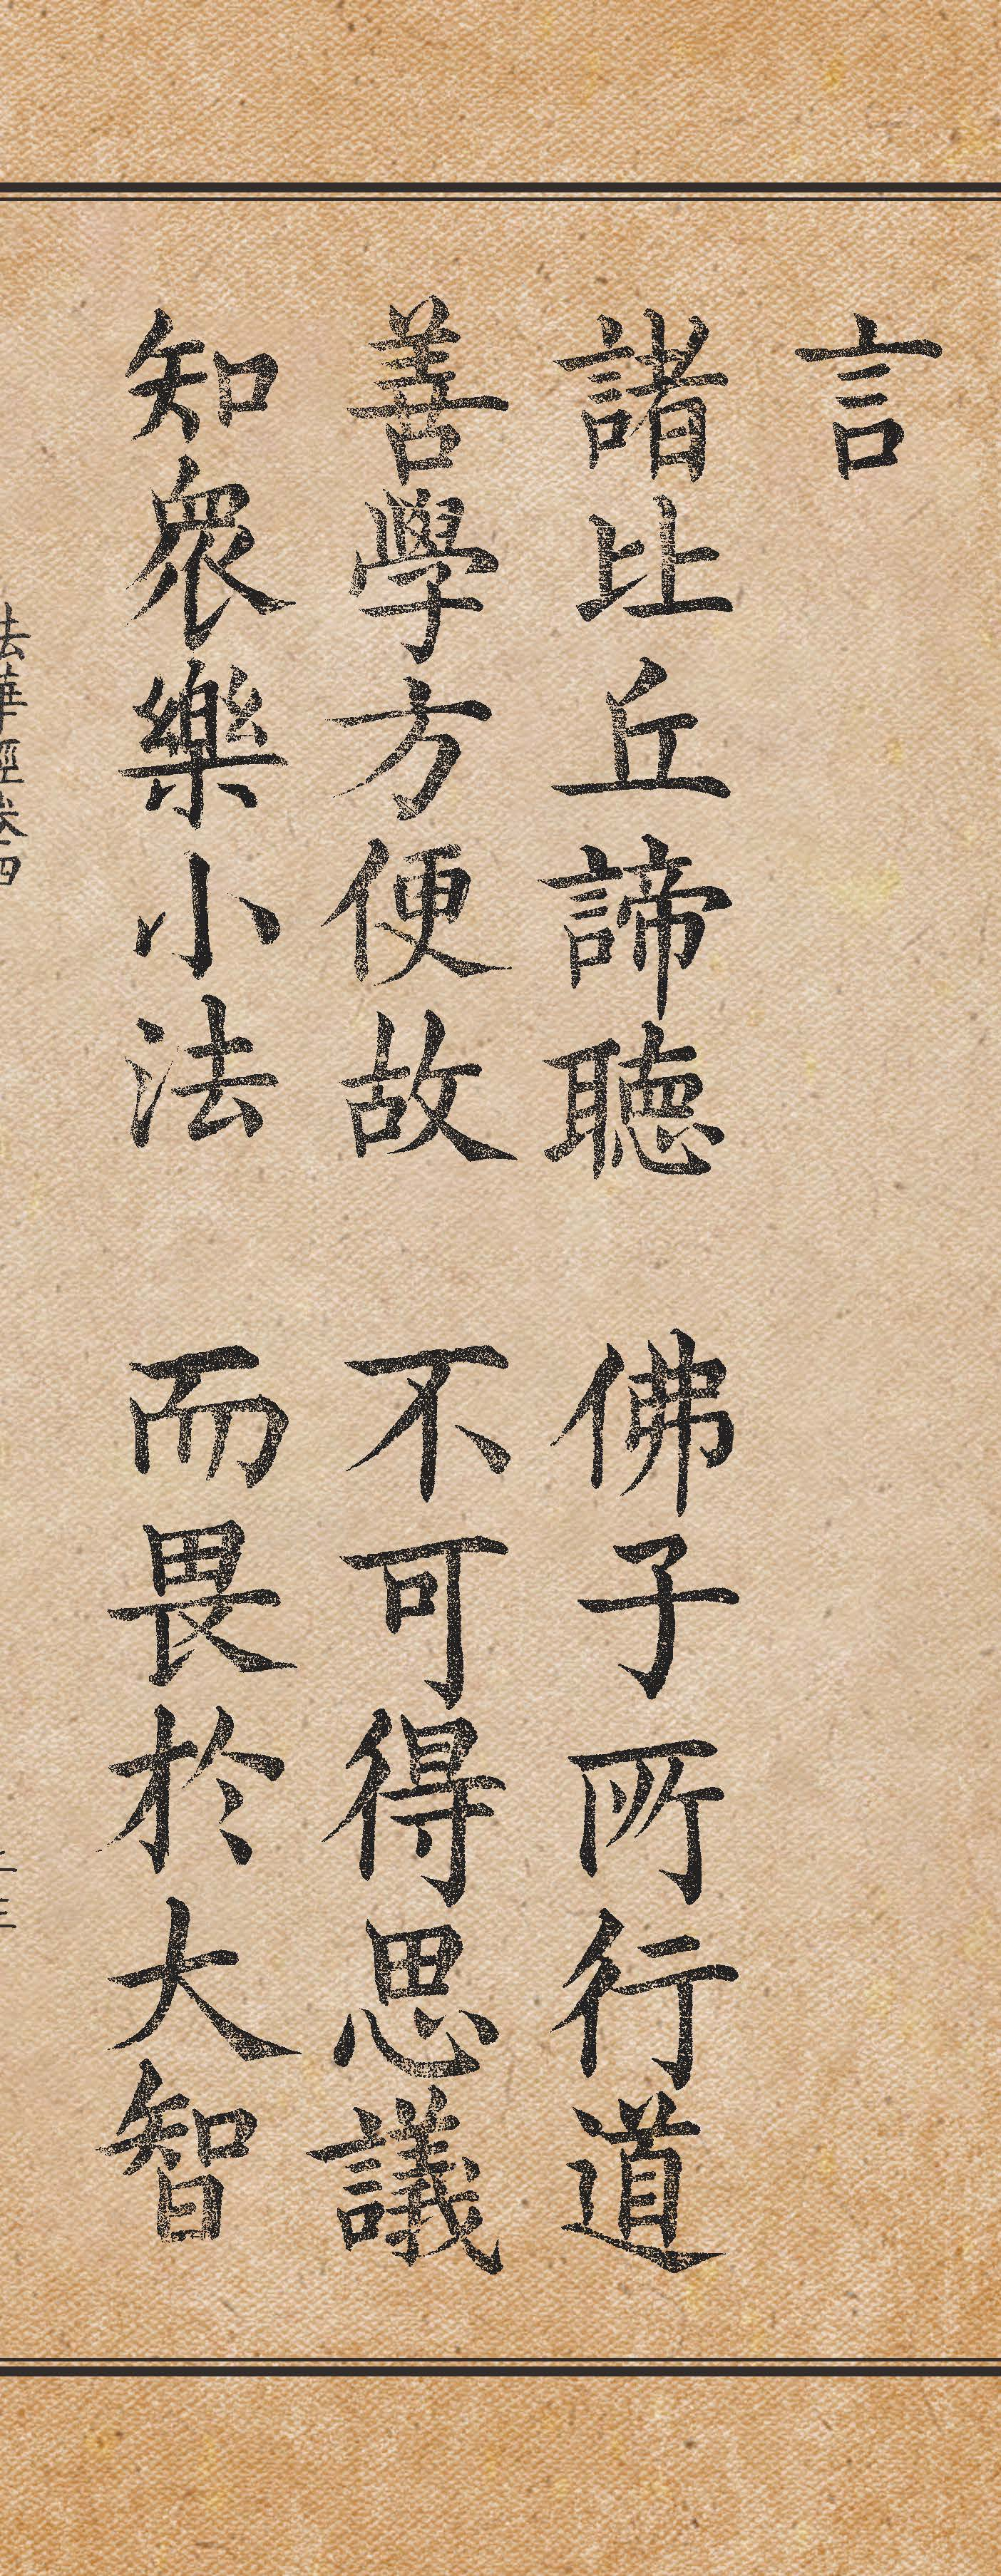 言
諸比丘諦聽 佛子所行道
善學方便故 不可得思議
知眾樂小法 而畏於大智
法華經卷四